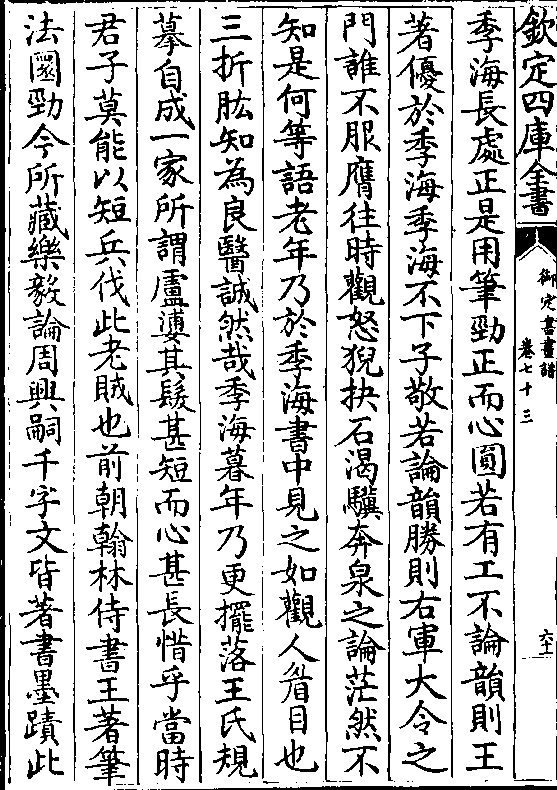 欽定四庫全書
御定書畫譜
卷七十三
六十
季海長處正是用筆勁正而心圓若有工不論韻則王
著優於季海季海不下子敬若論韻勝則右軍大令之
門誰不服膺往時觀怒猊抉石渴驥奔泉之論茫然不
知是何等語老年乃於季海書中見之如觀人眉目也
三折肱知為良醫誠然哉季海暮年乃更擺落王氏規
摹自成一家所謂盧蒲其髮甚短而心甚長惜乎當時
君子莫能以短兵伐此老賊也前朝翰林侍書王著筆
法圜勁今所藏樂毅論周興嗣千字文皆著書墨蹟此